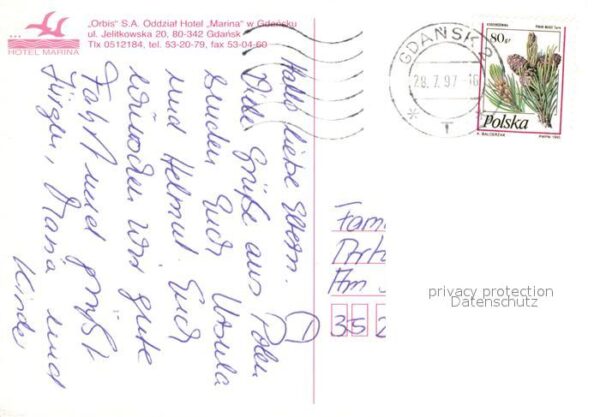 „Orbis" S.A. Oddział Hotel „Marina" w Gdańsku
ul. Jelitkowska 20, 80-342 Gdańsk
Tlx 0512184, tel. 53-20-79, fax 53-04-60
HOTEL MARINA
Hallo liebe Eltern.
Viele Grüße aus Polen
senden Euch Ursula
und Helmut. Euch
wünschen wir gute
Fahrt und grüßt
Jürgen, Maria und
Kinder
GDAŃSK
28.7.97
T
80gr
Polska
Fam
Am
35 2
privacy protection
Datenschutz